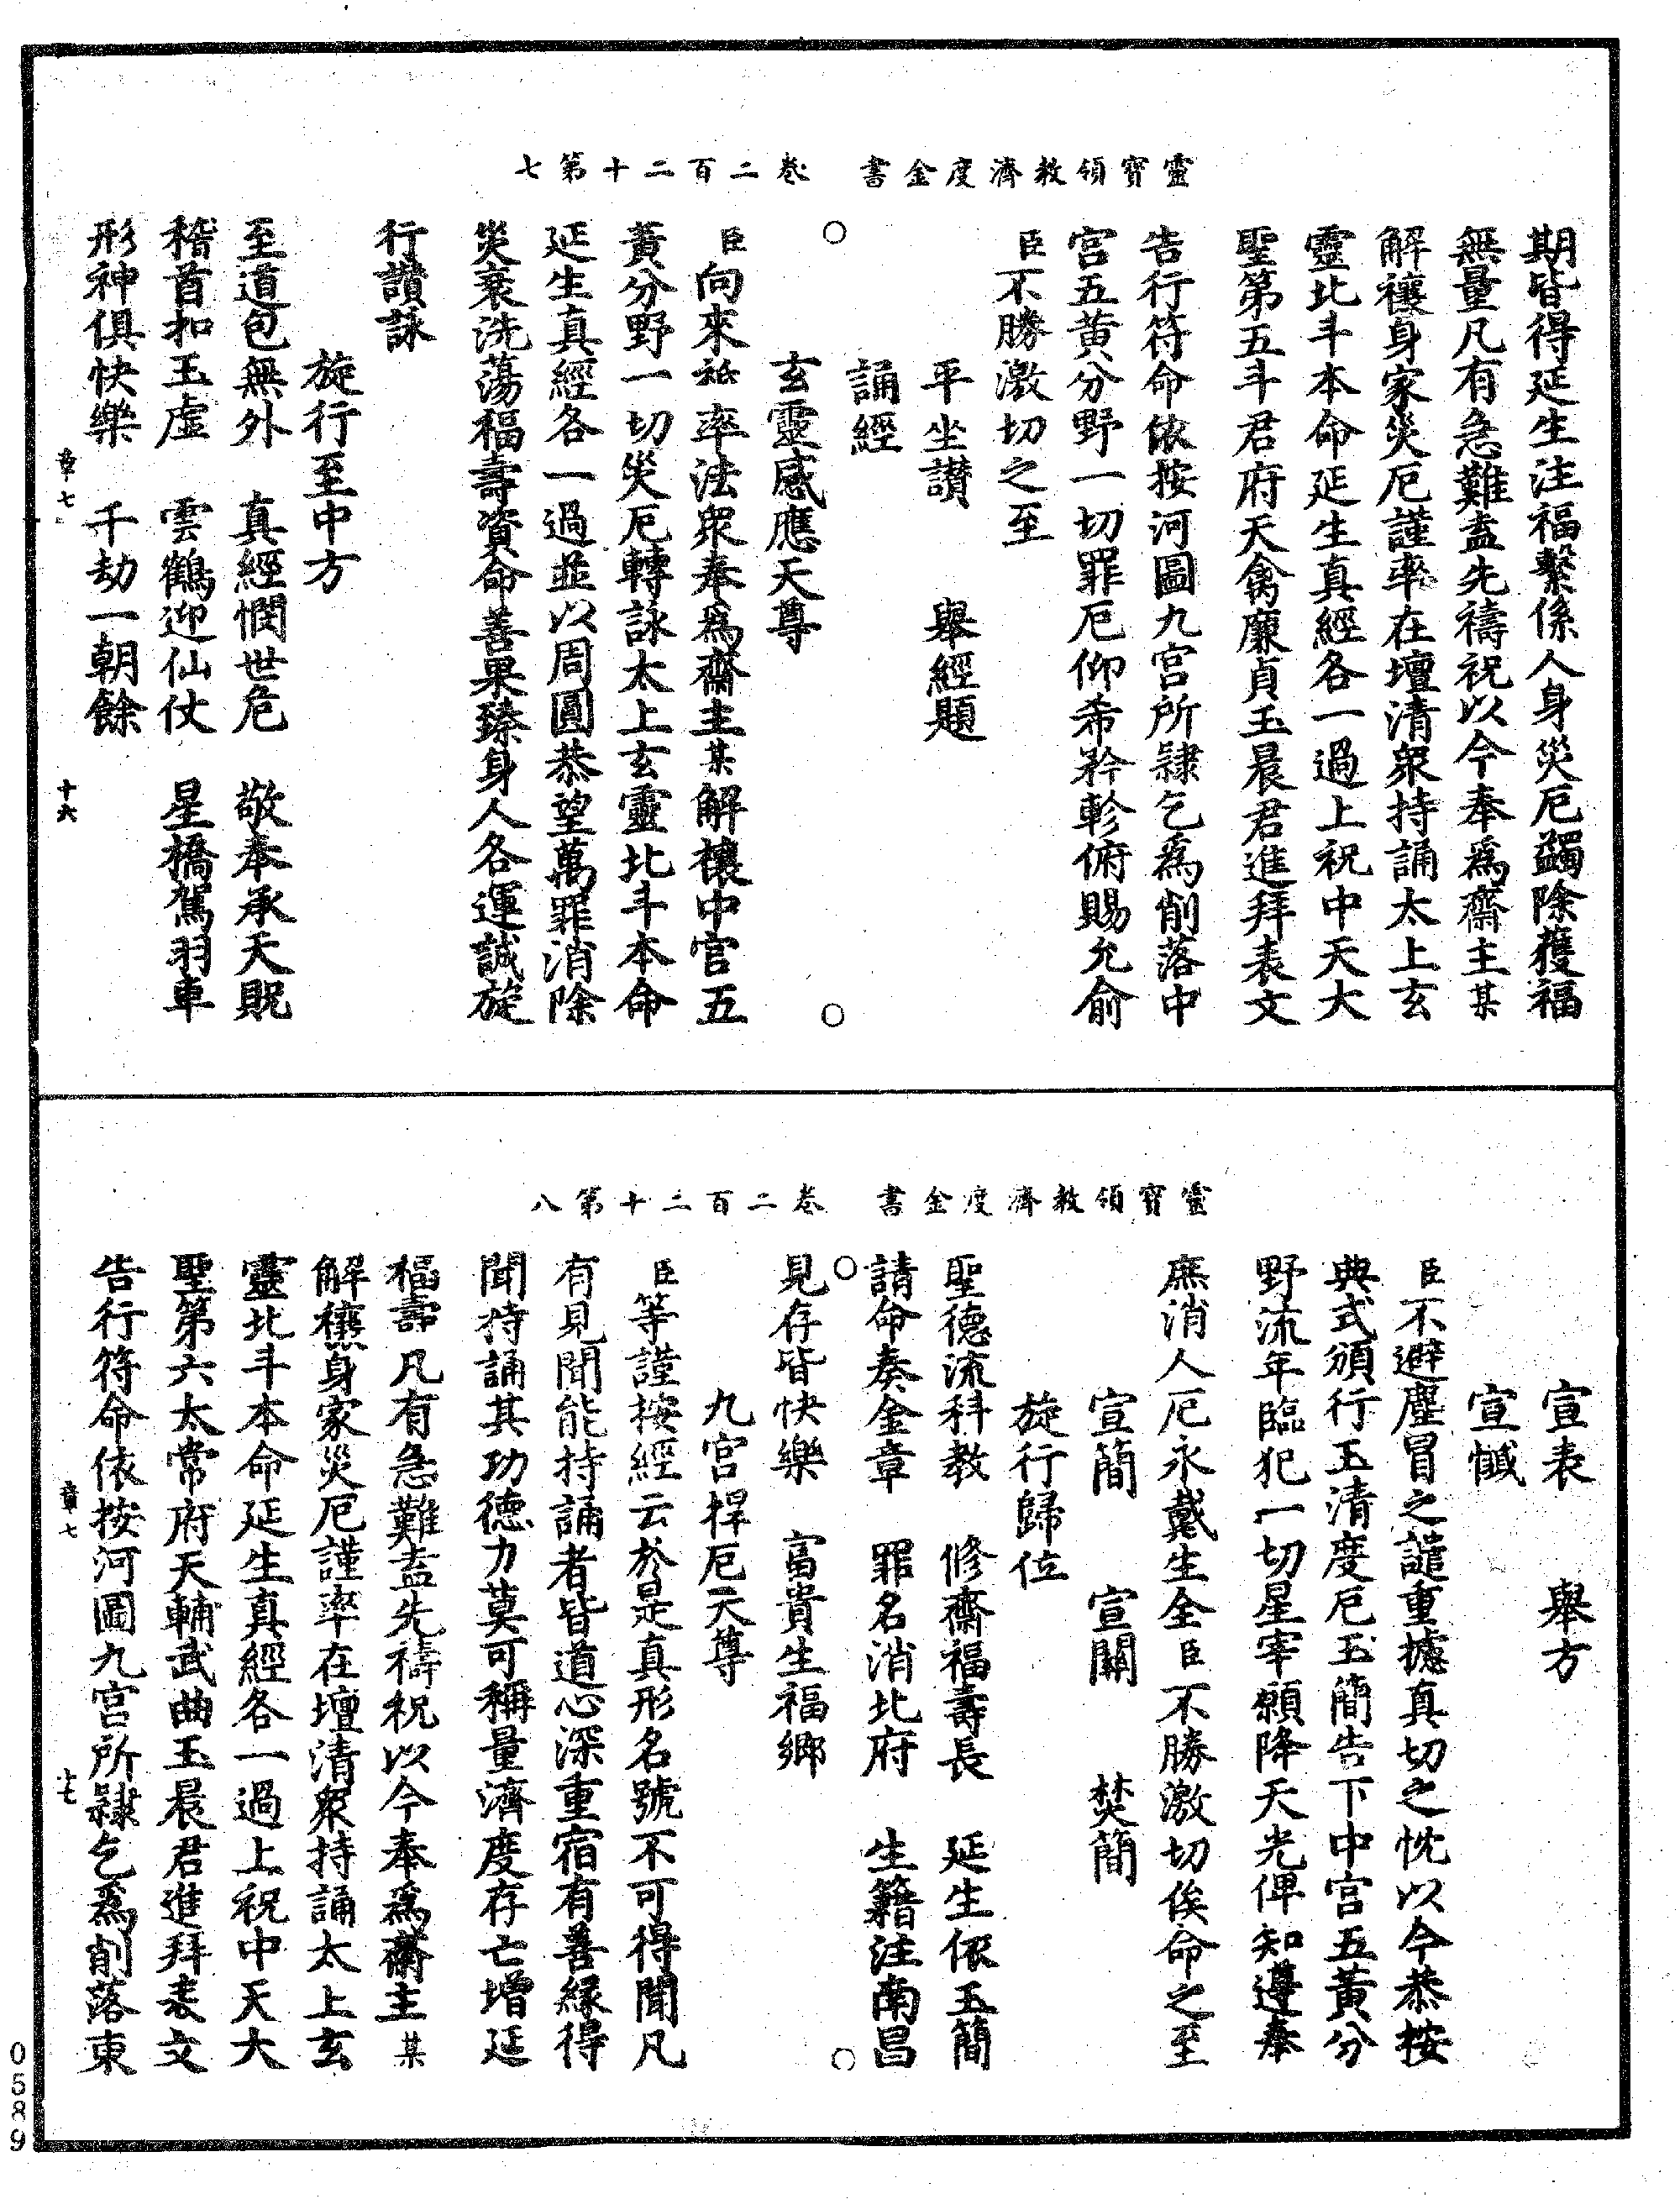 靈寶領教濟度金書 卷二百二十第七
期皆得延生注福繫係人身災厄蠲除獲福
無量凡有急難盍先禱祝以今奉爲齋主某
解禳身家災厄謹率在壇清衆持誦太上玄
靈北斗本命延生真經各一過上祝中天大
聖第五斗君府天禽廉貞玉晨君進拜表文
告行符命依按河圖九宮所隸乞爲削落中
宮五黄分野一切罪厄仰希矜軫俯賜允俞
臣不勝激切之至
平坐讚 舉經題
誦經
○ ○
玄靈感應天尊
臣向來祗率法衆奉爲齋主某解禳中宮五
黃分野一切災厄轉詠太上玄靈北斗本命
延生真經各一過並以周圓恭望萬罪消除
災衰洗蕩福壽資命善果臻身人各運誠旋
行讚詠
旋行至中方
至道包無外 真經憫世危 敬奉承天貺
稽首扣玉虛 雲鶴迎仙仗 星橋駕羽車
形神俱快樂 千劫一朝餘
章七 十六
靈寶領教濟度金書 卷二百二十第八
宣表 舉方
宣懺
臣不避塵冒之譴重攄真切之忱以今恭按
典式頒行玉清度厄玉簡告下中宮五黃分
野流年臨犯一切星宰願降天光俾知遵奉
庶消人厄永戴生全臣不勝激切俟命之至
宣簡 宣關 焚簡
旋行歸位
聖德流科教 修齋福壽長 延生依玉簡
請命奏金章 罪名消北府 生籍注南昌
○ ○
見存皆快樂 富貴生福鄉
九宮捍厄天尊
臣等謹按經云於是真形名號不可得聞凡
有見聞能持誦者皆道心深重宿有善緣得
聞持誦其功德力莫可稱量濟度存亡增延
福壽凡有急難盍先禱祝以今奉爲齋主某
解禳身家災厄謹率在壇清衆持誦太上玄
靈北斗本命延生真經各一過上祝中天大
聖第六太常府天輔武曲玉晨君進拜表文
告行符命依按河圖九宮所隸乞爲削落東
章七 十七
0589